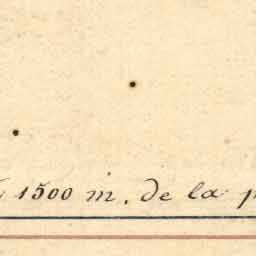 1500 m. de la